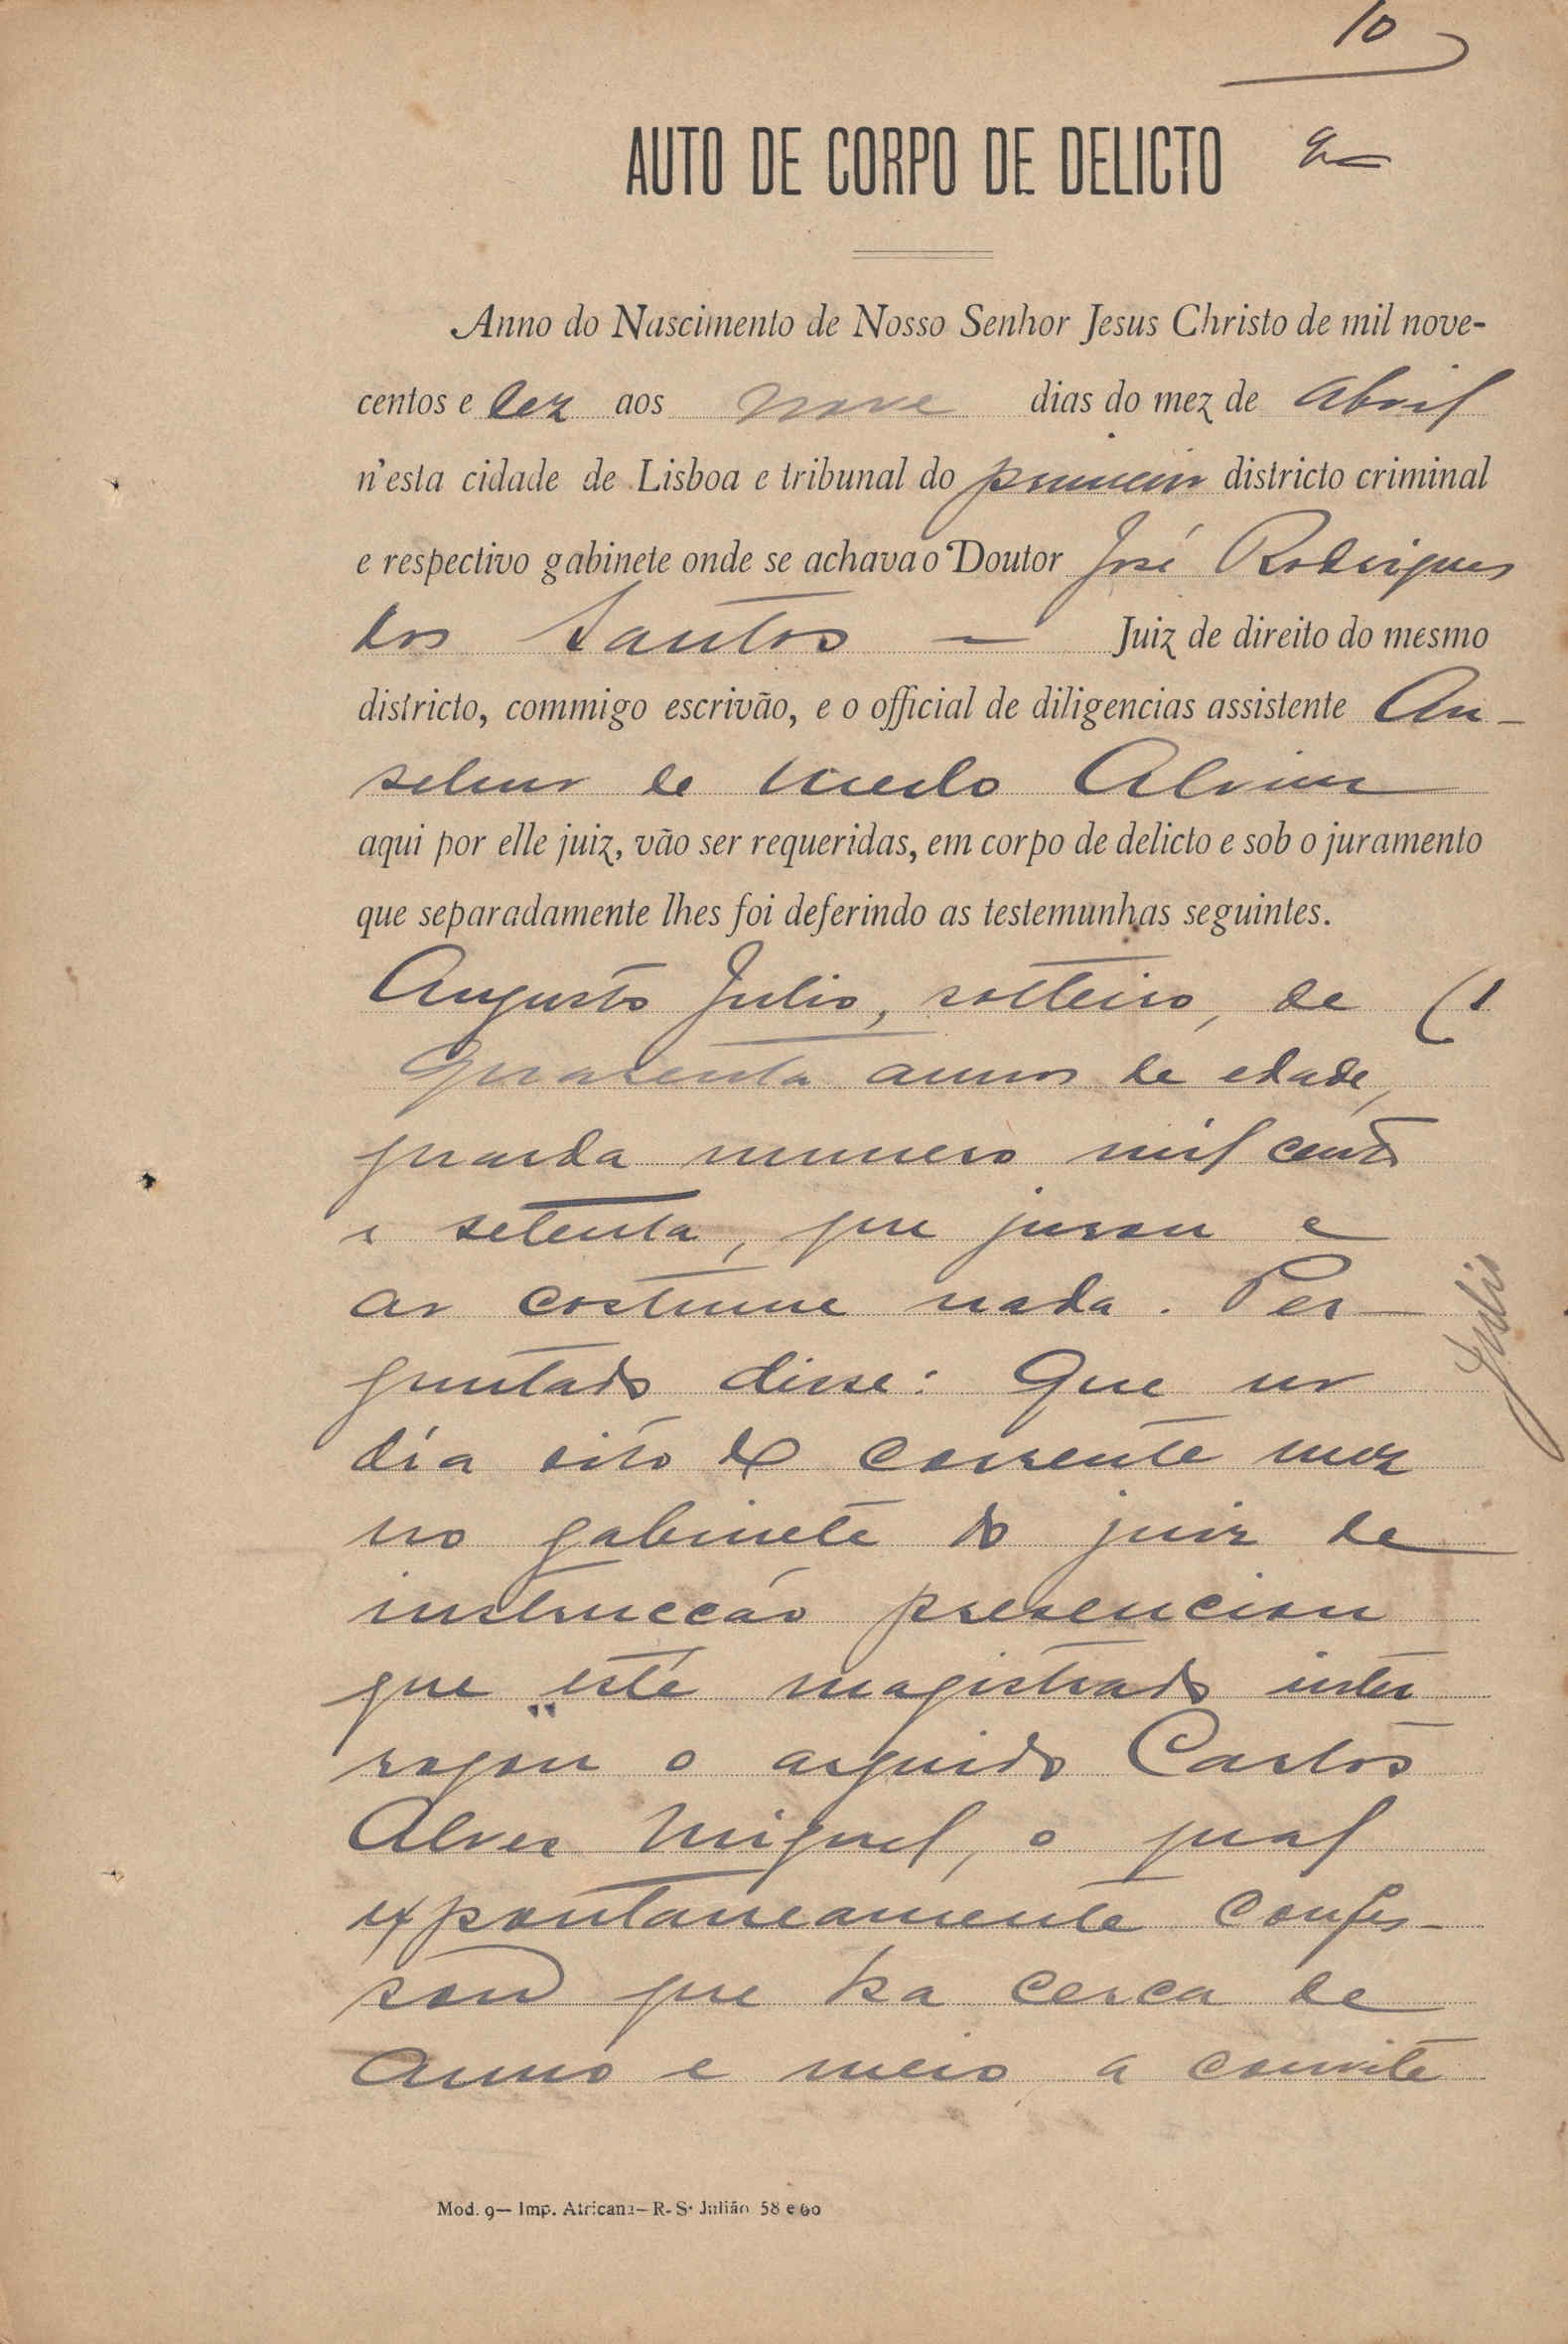 10
AUTO DE CORPO DE DELICTO
Anno do Nascimento de Nosso Senhor Jesus Christo de mil nove-
centos e dez aos nove dias do mez de Abril
n'esta cidade de Lisboa e tribunal do primeiro districto criminal
e respectivo gabinete onde se achava o Doutor José Rodrigues
dos Santos — Juiz de direito do mesmo
districto, commigo escrivão, e o official de diligencias assistente An-
selmo de Mello Alvim
aqui por elle juiz, vão ser requeridas, em corpo de delicto e sob o juramento
que separadamente lhes foi deferindo as testemunhas seguintes.
Augusto Julio, solteiro, de (1
quarenta annos de edade,
guarda numero mil cento
e setenta, que jurou e
ao costume nada. Per-
guntado disse: Que no
dia oito do corrente mez
no gabinete do juiz de
instrucção presenciou
que este magistrado inter
rogou o arguido Carlos
Alves Miguel, o qual
expontaneamente confes-
sou que ha cerca de
anno e meio, a convite
Julio
Mod. 9— Imp. Africana— R. S. Julião 58 e 60